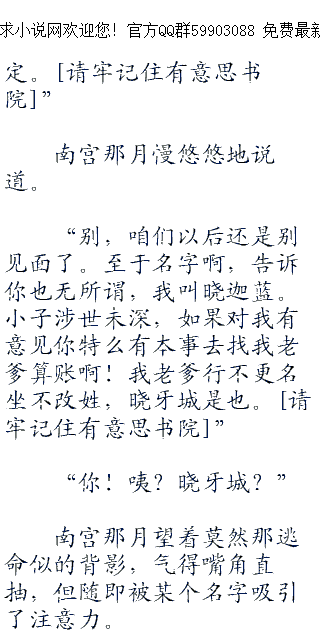 求小说网欢迎您！官方QQ群59903088 免费最新
定。[请牢记住有意思书
院]”
南宫那月慢悠悠地说
道。
“别，咱们以后还是别
见面了。至于名字啊，告诉
你也无所谓，我叫晓迦蓝。
小子涉世未深，如果对我有
意见你特么有本事去找我老
爹算账啊！我老爹行不更名
坐不改姓，晓牙城是也。[请
牢记住有意思书院]”
“你！咦？晓牙城？”
南宫那月望着莫然那逃
命似的背影，气得嘴角直
抽，但随即被某个名字吸引
了注意力。